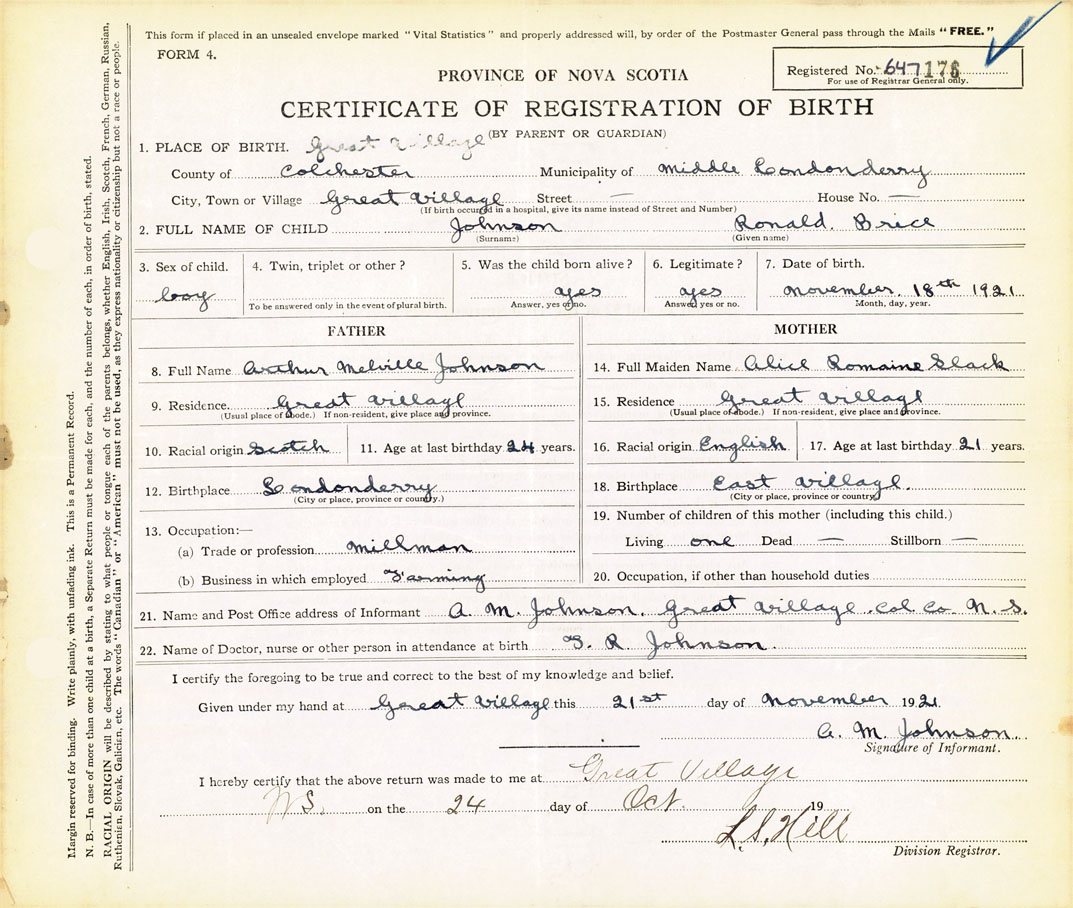 This form if placed in an unsealed envelope marked "Vital Statistics" and properly addressed will, by order of the Postmaster General pass through the Mails "FREE."
FORM 4.
Registered No. 647176
For use of Registrar General only.
PROVINCE OF NOVA SCOTIA
CERTIFICATE OF REGISTRATION OF BIRTH
(BY PARENT OR GUARDIAN)
1. PLACE OF BIRTH. Great Village
County of Colchester Municipality of Middle Londonderry
City, Town or Village Great Village Street — House No. —
(If birth occured in a hospital, give its name instead of Street and Number)
2. FULL NAME OF CHILD Johnson Ronald. Brice
(Surname) (Given name)
3. Sex of child. 4. Twin, triplet or other? 5. Was the child born alive? 6. Legitimate? 7. Date of birth.
boy yes yes November. 18th 1921
To be answered only in the event of plural birth. Answer, yes or no. Answer yes or no. Month, day, year.
FATHER
8. Full Name Arthur Melville Johnson
9. Residence. Great Village
(Usual place of abode.) If non-resident, give place and province.
10. Racial origin Scotch 11. Age at last birthday 24 years.
12. Birthplace Londonderry
(City or place, province or country.)
13. Occupation:—
(a) Trade or profession millman
(b) Business in which employed Farming
MOTHER
14. Full Maiden Name Alice Romaine Slack
15. Residence Great Village
(Usual place of abode.) If non-resident, give place and province.
16. Racial origin English 17. Age at last birthday 21 years.
18. Birthplace East Village.
(City or place, province or country)
19. Number of children of this mother (including this child.)
Living one Dead — Stillborn —
20. Occupation, if other than household duties
21. Name and Post Office address of Informant A. M. Johnson. Great Village. Col. Co. N. S.
22. Name of Doctor, nurse or other person in attendance at birth T. R. Johnson.
I certify the foregoing to be true and correct to the best of my knowledge and belief.
Given under my hand at Great Village this 21st day of November 1921.
A. M. Johnson.
Signature of Informant.
I hereby certify that the above return was made to me at Great Village
N.S. on the 24 day of Oct. 19
L. S. Hill
Division Registrar.
Margin reserved for binding. Write plainly, with unfading ink. This is a Permanent Record.
N. B.—In case of more than one child at a birth, a Separate Return must be made for each, and the number of each, in order of birth, stated.
RACIAL ORIGIN will be described by stating to what people or tongue each of the parents belongs, whether English, Irish, Scotch, French, German, Russian,
Ruthenian, Slovak, Galician, etc. The words "Canadian" or "American" must not be used, as they express nationality or citizenship but not a race or people.